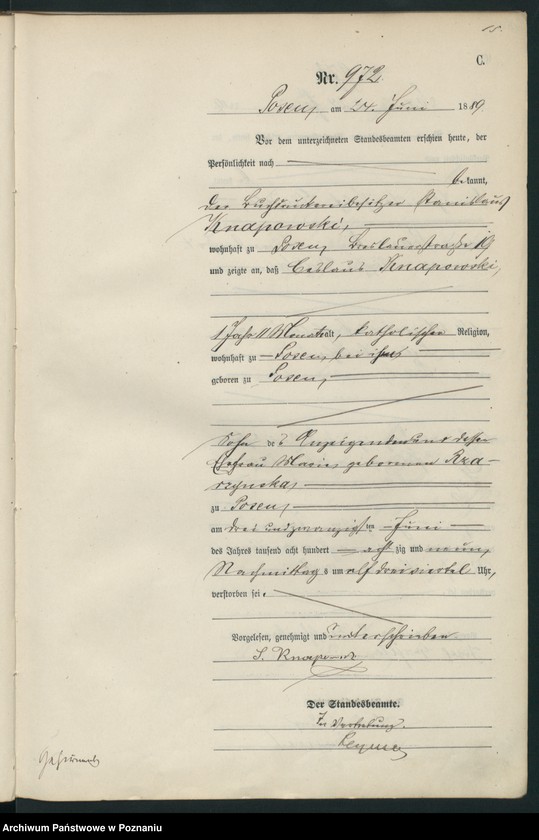 15.
C.
Nr. 972.
Posen, am 24. Juni 1889.
Vor dem unterzeichneten Standesbeamten erschien heute, der
Persönlichkeit nach
bekannt,
der Buchdruckereibesitzer Stanislaus
Knapowski,
wohnhaft zu Posen, Breslauerstraße 19
und zeigte an, daß Ceslaus Knapowski,
1 Jahr 11 Monate alt, katholischer Religion,
wohnhaft zu Posen, bei ihm
geboren zu Posen,
Sohn des Anzeigenden und dessen
Ehefrau Marie, geborenen Rza-
zu Posen,
am drei und zwanzigsten Juni
des Jahres tausend acht hundert achtzig und neun,
Nachmittags um elf drei viertel Uhr,
verstorben sei.
Vorgelesen, genehmigt und unterschrieben
S. Knapowski
Der Standesbeamte.
In Vertretung.
Archiwum Państwowe w Poznaniu